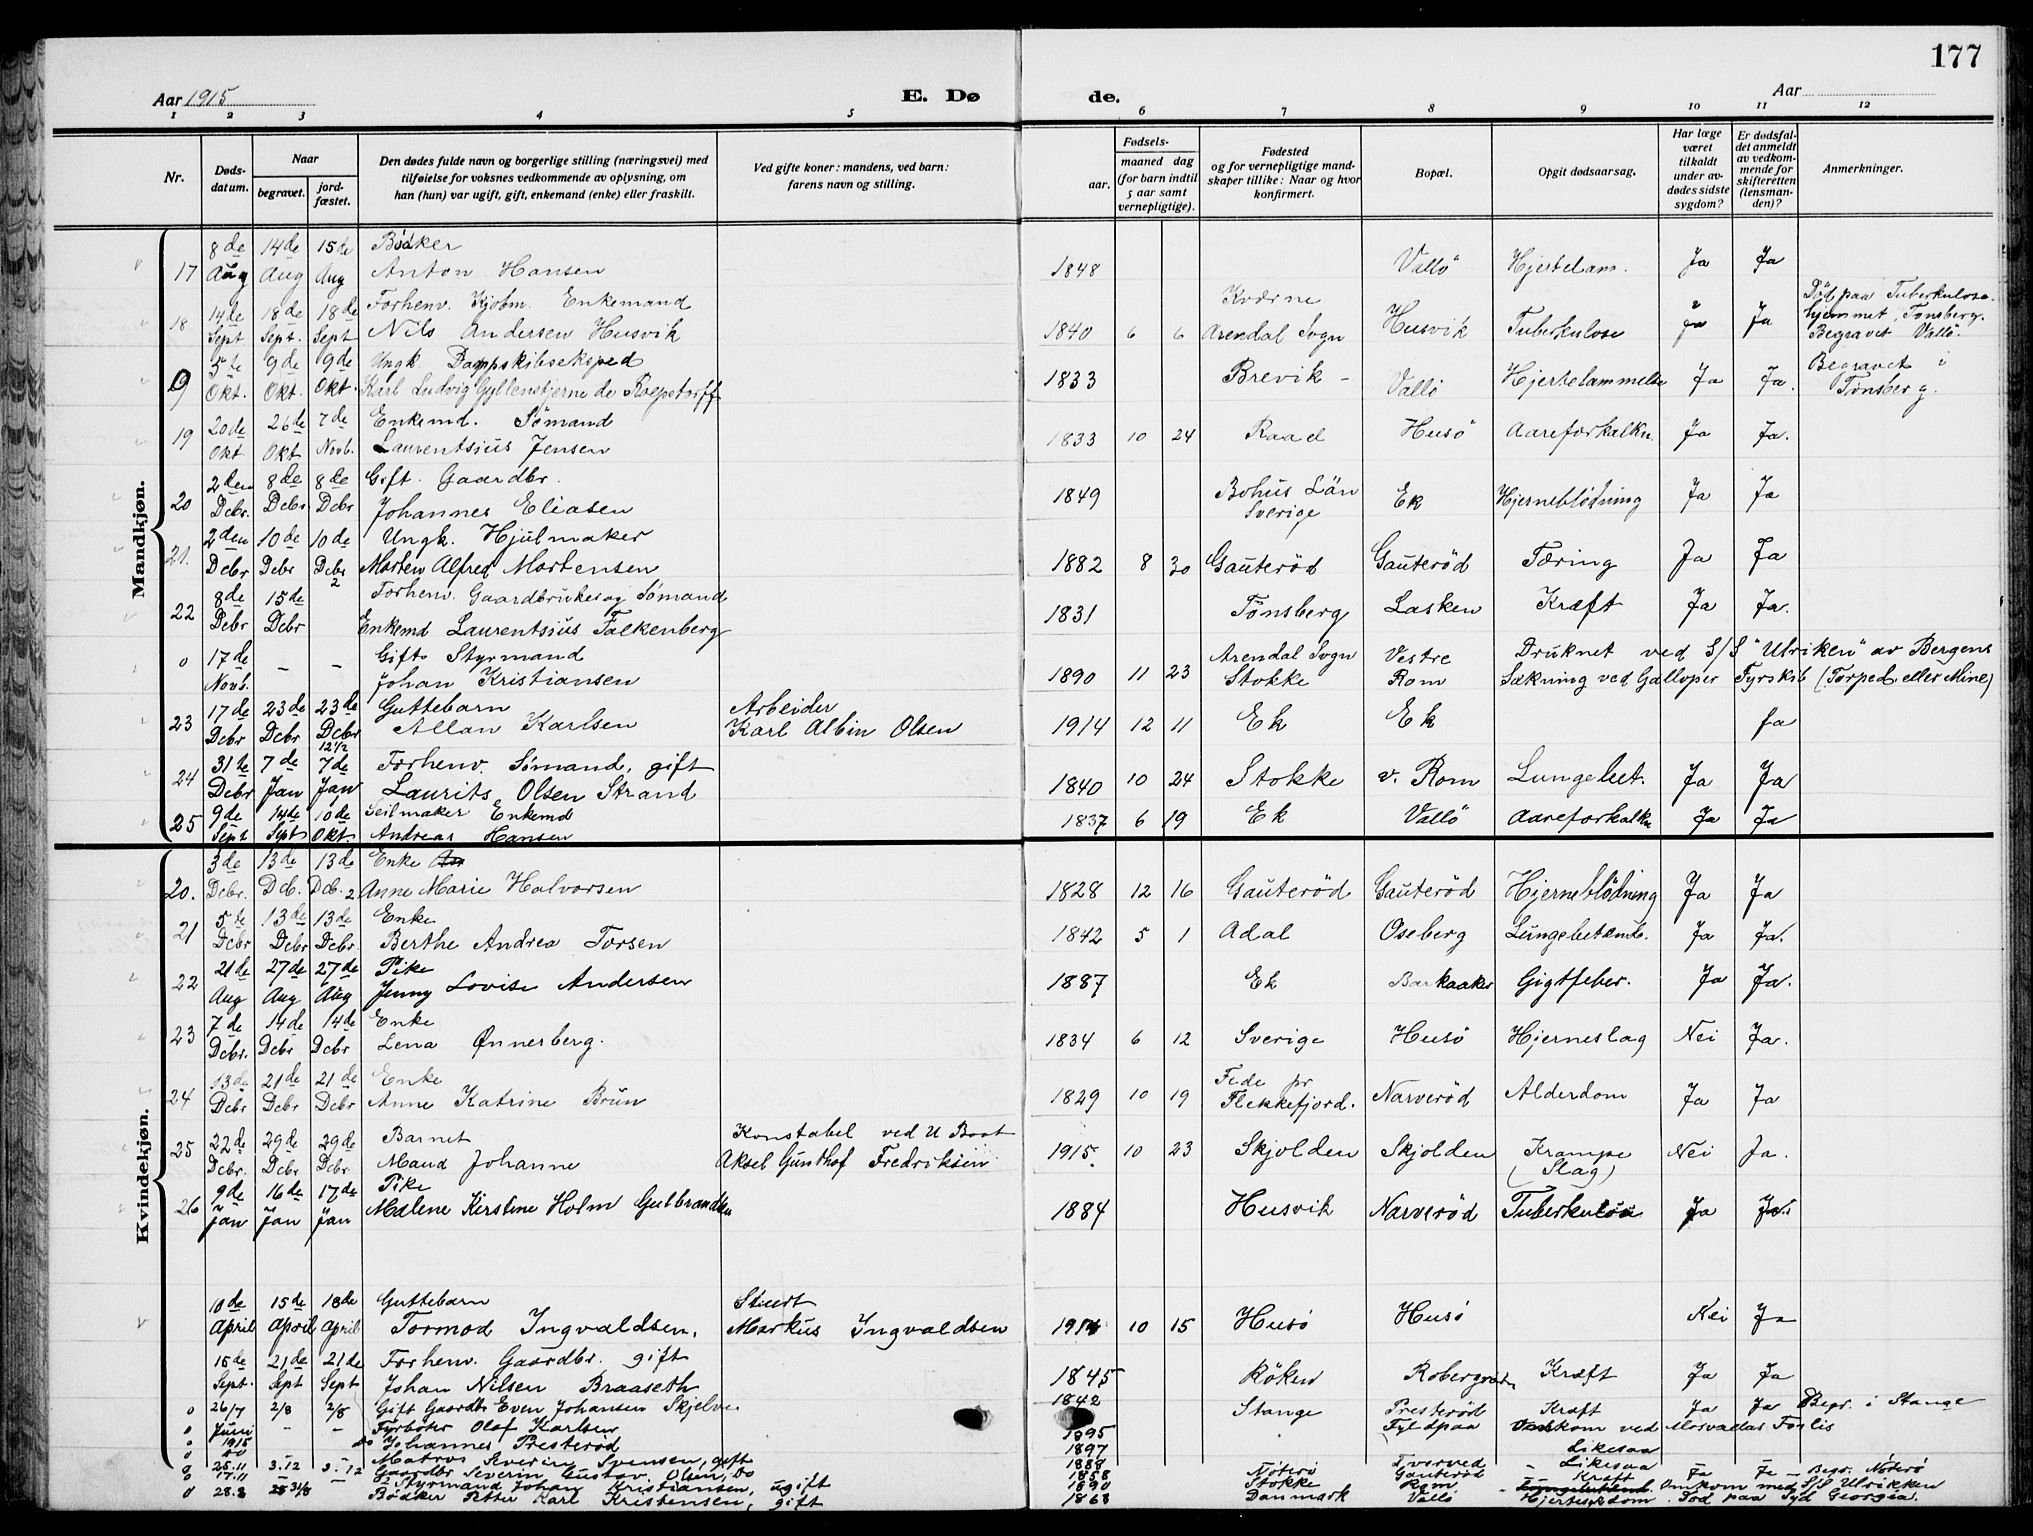 177
Aar 1915
E. Dø
de.
Aar
1 2 3 4 5 6 7 8 9 10 11 12
Nr.
Døds-
datum.
Naar
begravet.
jord-
fæstet.
Den dødes fulde navn og borgerlige stilling (næringsvei) med
tilføielse for voksnes vedkommende av oplysning, om
han (hun) var ugift, gift, enkemand (enke) eller fraskilt.
Ved gifte koner: mandens, ved barn:
farens navn og stilling.
Fødsels-
aar.
maaned dag
(for barn indtil
5 aar samt
vernepligtige).
Fødested
og for vernepligtige mand-
skaper tillike: Naar og hvor
konfirmert.
Bopæl.
Opgit dødsaarsag.
Har læge
været
tilkaldt
under av-
dødes sidste
sygdom?
Er dødsfal-
det anmeldt
av vedkom-
mende for
skifteretten
(lensman-
den)?
Anmerkninger.
Mandkjøn.
8de 14de 15de Bødker
17 Aug Aug Aug Anton Hansen 1848 Vallö Hjertelam. Ja Ja
14de 18de 18de Forhenv. Kjøbm. Enkemand Kværne Død paa Tuberkulose-
18 Sept Sept. Sept Nils Andersen Husvik 1840 6 6 Arendal Sogn Husvik Tuberkulose Ja Ja hjemmet, Tønsberg.
Begravet Vallö.
5te 9de 9de Ungk Dampskibseksped Begravet i
9 Okt. Okt. Okt. Karl Ludvig Gyllenstjerne de Roepstorff 1833 Brevik - Vallö Hjertelammelse Ja Ja. Tønsberg.
20de 26de 7de Enkemd. Sømand
19 Okt Okt Novb. Laurentsius Jensen 1833 10 24 Raad Husö Aareforkalkn. Ja Ja.
2den 8de 8de Gift. Gaardbr. Bohus Län
20 Dcbr. Dcbr. Dcbr Johannes Eliasen 1849 Sverige Ek Hjerneblödning Ja Ja
2den 10de 10de Ungk. Hjulmaker
21. Dcbr Dcbr Dcbr Morten Alfred Mortensen 1882 8 30 Gauteröd Gauteröd Tæring Ja Ja
2
8de 15de Forhenv. Gaardbruker og Sømand
22 Dcbr Dcbr Enkemd Laurentsius Falkenberg 1831 Tønsberg Lasken Kræft Ja Ja.
0 17de - - Gift Styrmand Arendal Sogn Vestre Druknet ved S/S "Ulriken" av Bergens
Novb. Johan Kristiansen 1890 11 23 Stokke Rom Sækning ved Galloper Fyrskib (Torped. eller Mine)
17de 23de 23de Guttebarn Arbeider
23 Dcbr Dcbr Dcbr Allan Karlsen Karl Albin Olsen 1914 12 11 Ek Ek Ja
12 1/2
31te 7de 7de Forhenv. Sømand, gift
24 Dcbr Jan Jan Laurits Olsen Strand 1840 10 24 Stokke v. Rom Lungebet. Ja Ja
9de 14de 10de Seilmaker Enkemd
25 Sept Sept Okt. Andreas Hansen 1837 6 19 Ek Vallö Aareforkalkn Ja Ja
Kvindekjøn.
3de 13de 13de Enke
20. Dcbr. Dcb. Dcb. 2 Anne Marie Halvorsen 1828 12 16 Gauteröd Gauteröd Hjerneblödning Ja Ja
5te 13de 13de Enke
21 Dcbr Dcbr Dcbr Berthe Andrea Torsen 1842 5 1 Adal Oseberg Lungebetænd. Ja Ja.
21de 27de 27de Pike
22 Aug Aug Aug Jenny Lovise Andersen 1887 Ek Barkaaker Gigtfeber. Ja Ja.
7de 14de 14de Enke
23 Dcbr. Dcbr Dcbr Lena Ønnerberg. 1834 6 12 Sverige Husö Hjerneslag Nei Ja.
13de 21de 21de Enke Fede pr
24 Dcbr Dcbr Dcbr Anne Katrine Brun 1829 10 19 Flekkefjord. Narveröd Alderdom Ja Ja
22de 29de 29de Barnet Konstabel ved U Baat
25 Dcbr. Dcbr Dcbr. Maud Johanne Aksel Gunthof Fredriksen 1915. 10 23 Skjolden Skjolden Krampe Nei Ja.
(Slag)
9de 16de 17de Pike
26 Jan Jan Jan Malene Kirstine Holm Gulbrandsen 1884 Husvik Narveröd Tuberkulose Ja Ja.
10de 15de 18de Guttebarn Stuert
April April April Tormod Ingvaldsen. Markus Ingvaldsen 1914 10 15 Husö Husö Nei Ja
15de 21de 21de Forhenv. Gaardbr. gift
Sept. Sept Sept Johan Nilsen Braaseth 1845 Röken Kræft Ja Ja
0 26/7 2/8 2/8 Gift Gaardbr Even Johansen Skjelve 1842 Stange Presteröd Kræft Ja Ja Begr. i Stange
0 Juni - - Fyrböter Olof Karlsen 1895 Omkom ved Forlis
0 1915 do Johannes Presteröd 1897 Likesaa
0 Matros Severin Svensen, gift 1888 Likesaa
0 25.11 3.12 3.12 Gaardbr Severin Gustav Olsen, do 1858 Nöterö Gauteröd Kræft Ja Ja - Begr. Nöterö
0 17.11 - - Styrmand Johan Kristiansen, ugift 1890 Stokke Rom Omkom med S/S Ulrikken
0 28.8 31/8 Bödker Petter Karl Kristensen, gift 1868 Danmark Vallö Hjertesykdom. Död paa Syd Georgia.